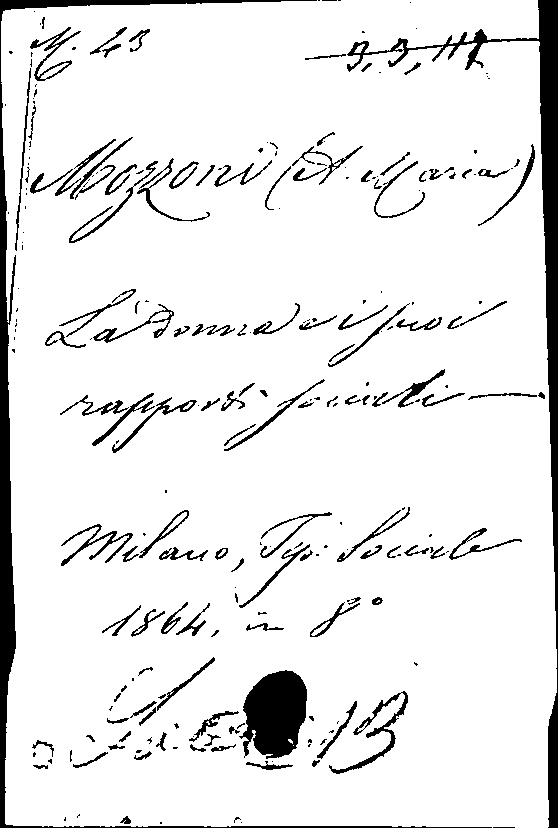 M. 43
3, 3, 117
Mozzoni (A. Maria)
La donna e i suoi
rapporti sociali —
Milano, Tip. Sociale
1864. in 8°